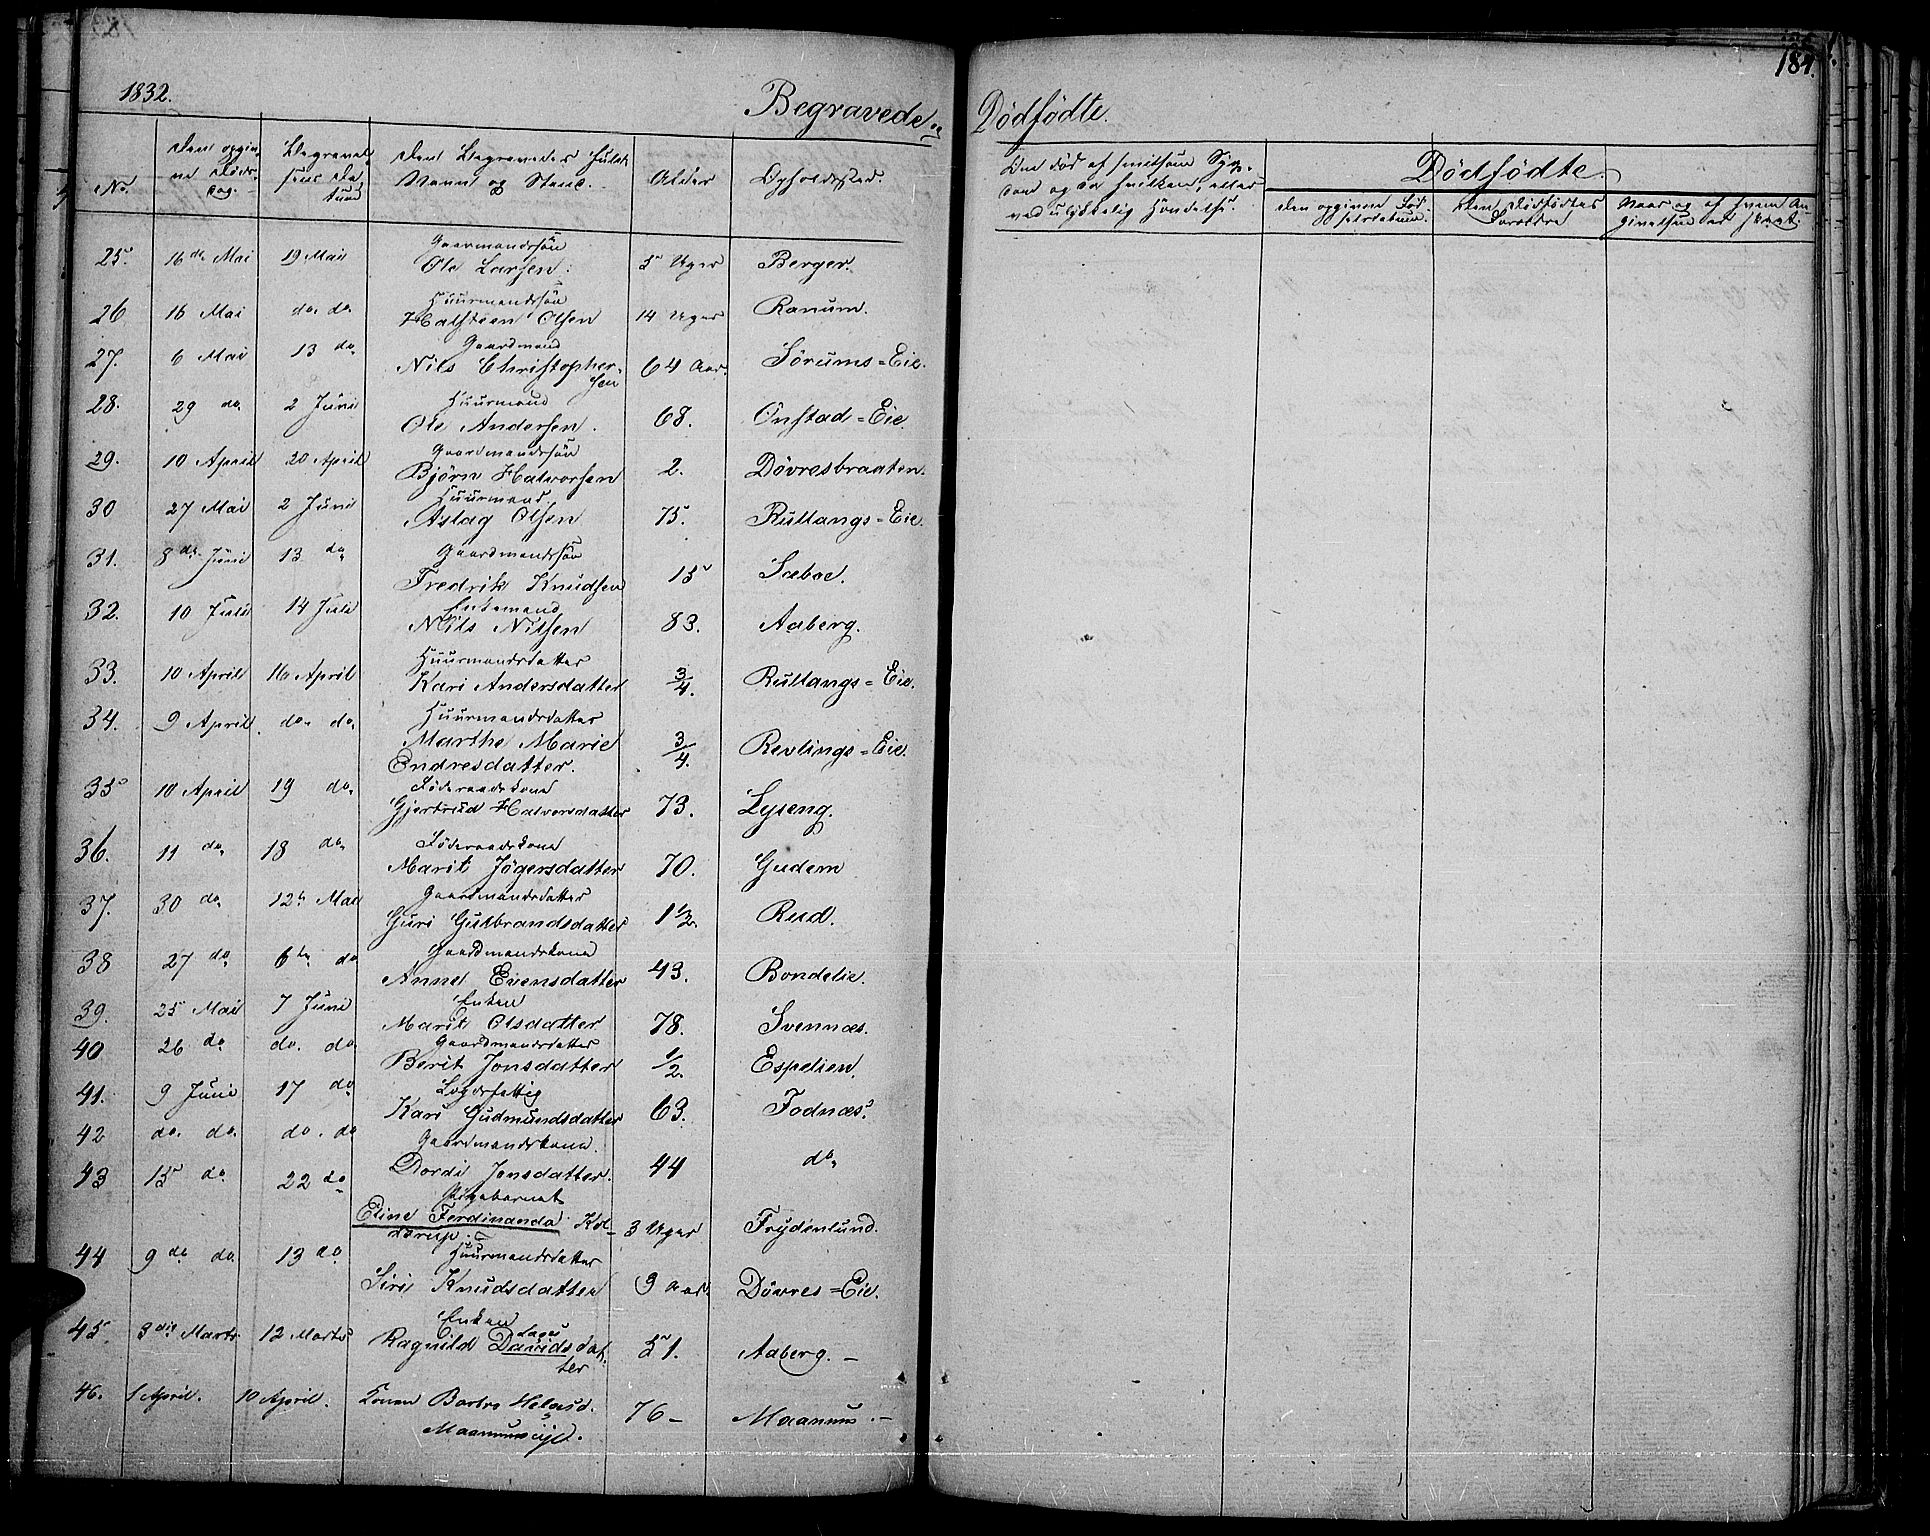 1832.
Begravede og Dödfödte.
184.
No.
Den opgivne Döds-dag.
Begravelsens Datum
Den Begravedes fulde Navn og Stand.
Alder
Opholdssted.
Om död af smitsom Syg-
dom og da hvilken, eller
ved ulykkelig Hændelse.
Dödfödte.
Den opgivne Föd-
selsdatum.
Den Dödfödtes
Forældre
Naar og af hvem An-
givelsen er skeet.
Gaardmandssön
25. 16de Mai 19 Mai Ole Larsen. 5 Uger Berger.
Huusmandssön
26 16 Mai do. do. Halsteen Olsen 14 Uger Ranum.
Gaardmand
27. 6 Mai 13 do. Nils Christopher-
sen 64 Aar. Sörums=Eie.
Huusmand
28. 29 do. 2 Juni Ole Andersen. 68. Onstad=Eie.
Gaardmandssön
29. 10 April 20 April Björn Halvorsen 2. Dövresbraaten.
Huusmand
30 27 Mai 2 Juni Aslag Olsen 75. Rullangs=Eie.
Gaardmandssön
31. 8de Juni 13 do. Fredrik Knudsen 15 Sæboe.
Enkemand
32. 10 Juli 14 Juli Nils Nilsen 83. Aaberg.
Huusmandsdatter
33. 10 April 16 April Kari Andersdatter 3/4. Rullangs=Eie.
Huusmandsdatter
34. 9 April do. do. Marthe Marie
Endresdatter. 3/4. Revlings=Eie.
Föderaadskone
35 10 April 19 do. Gjertrud Halvorsdatter 73. Lyseng.
Föderaadskone
36. 11 do. 18 do. Marit Jögersdatter 70. Gudem
Gaardmandsdatter
37. 30 do. 12te Mai Guri Gulbrandsdatter 1 1/2. Rud.
Gaardmandskone
38 27 do. 6te do. Anne Evensdatter 43. Bondelie.
Enken
39. 25 Mai 7 Juni Marit Olsdatter 78. Svennæs.
Gaardmandsdatter
40 26 do. do. do. Berit Jonsdatter 1/2. Espelien.
Lægdsfattig
41. 9 Juni 17 do Kari Gudmundsdatter 63. Fodnæs.
Gaardmandskone.
42 do. do. do. do Dordi Jonsdatter. 44 do.
Pigebarnet
43 15 do. 22 do Eline Ferdinanda Kol-
derup. 3 Uger Frydenlund.
Huusmandsdatter
44 9 do do. 13 do. Siri Knudsdatter 3 Aar. Dövres=Eie.
Enken
45. 3die Marts 12 Marts Ragnild Davidsdat-
ter 51. Aaberg. –
46. 1 April. 10 April. Konen Barbro Helgesd.
Maanumseije. 76 – Maanums. –